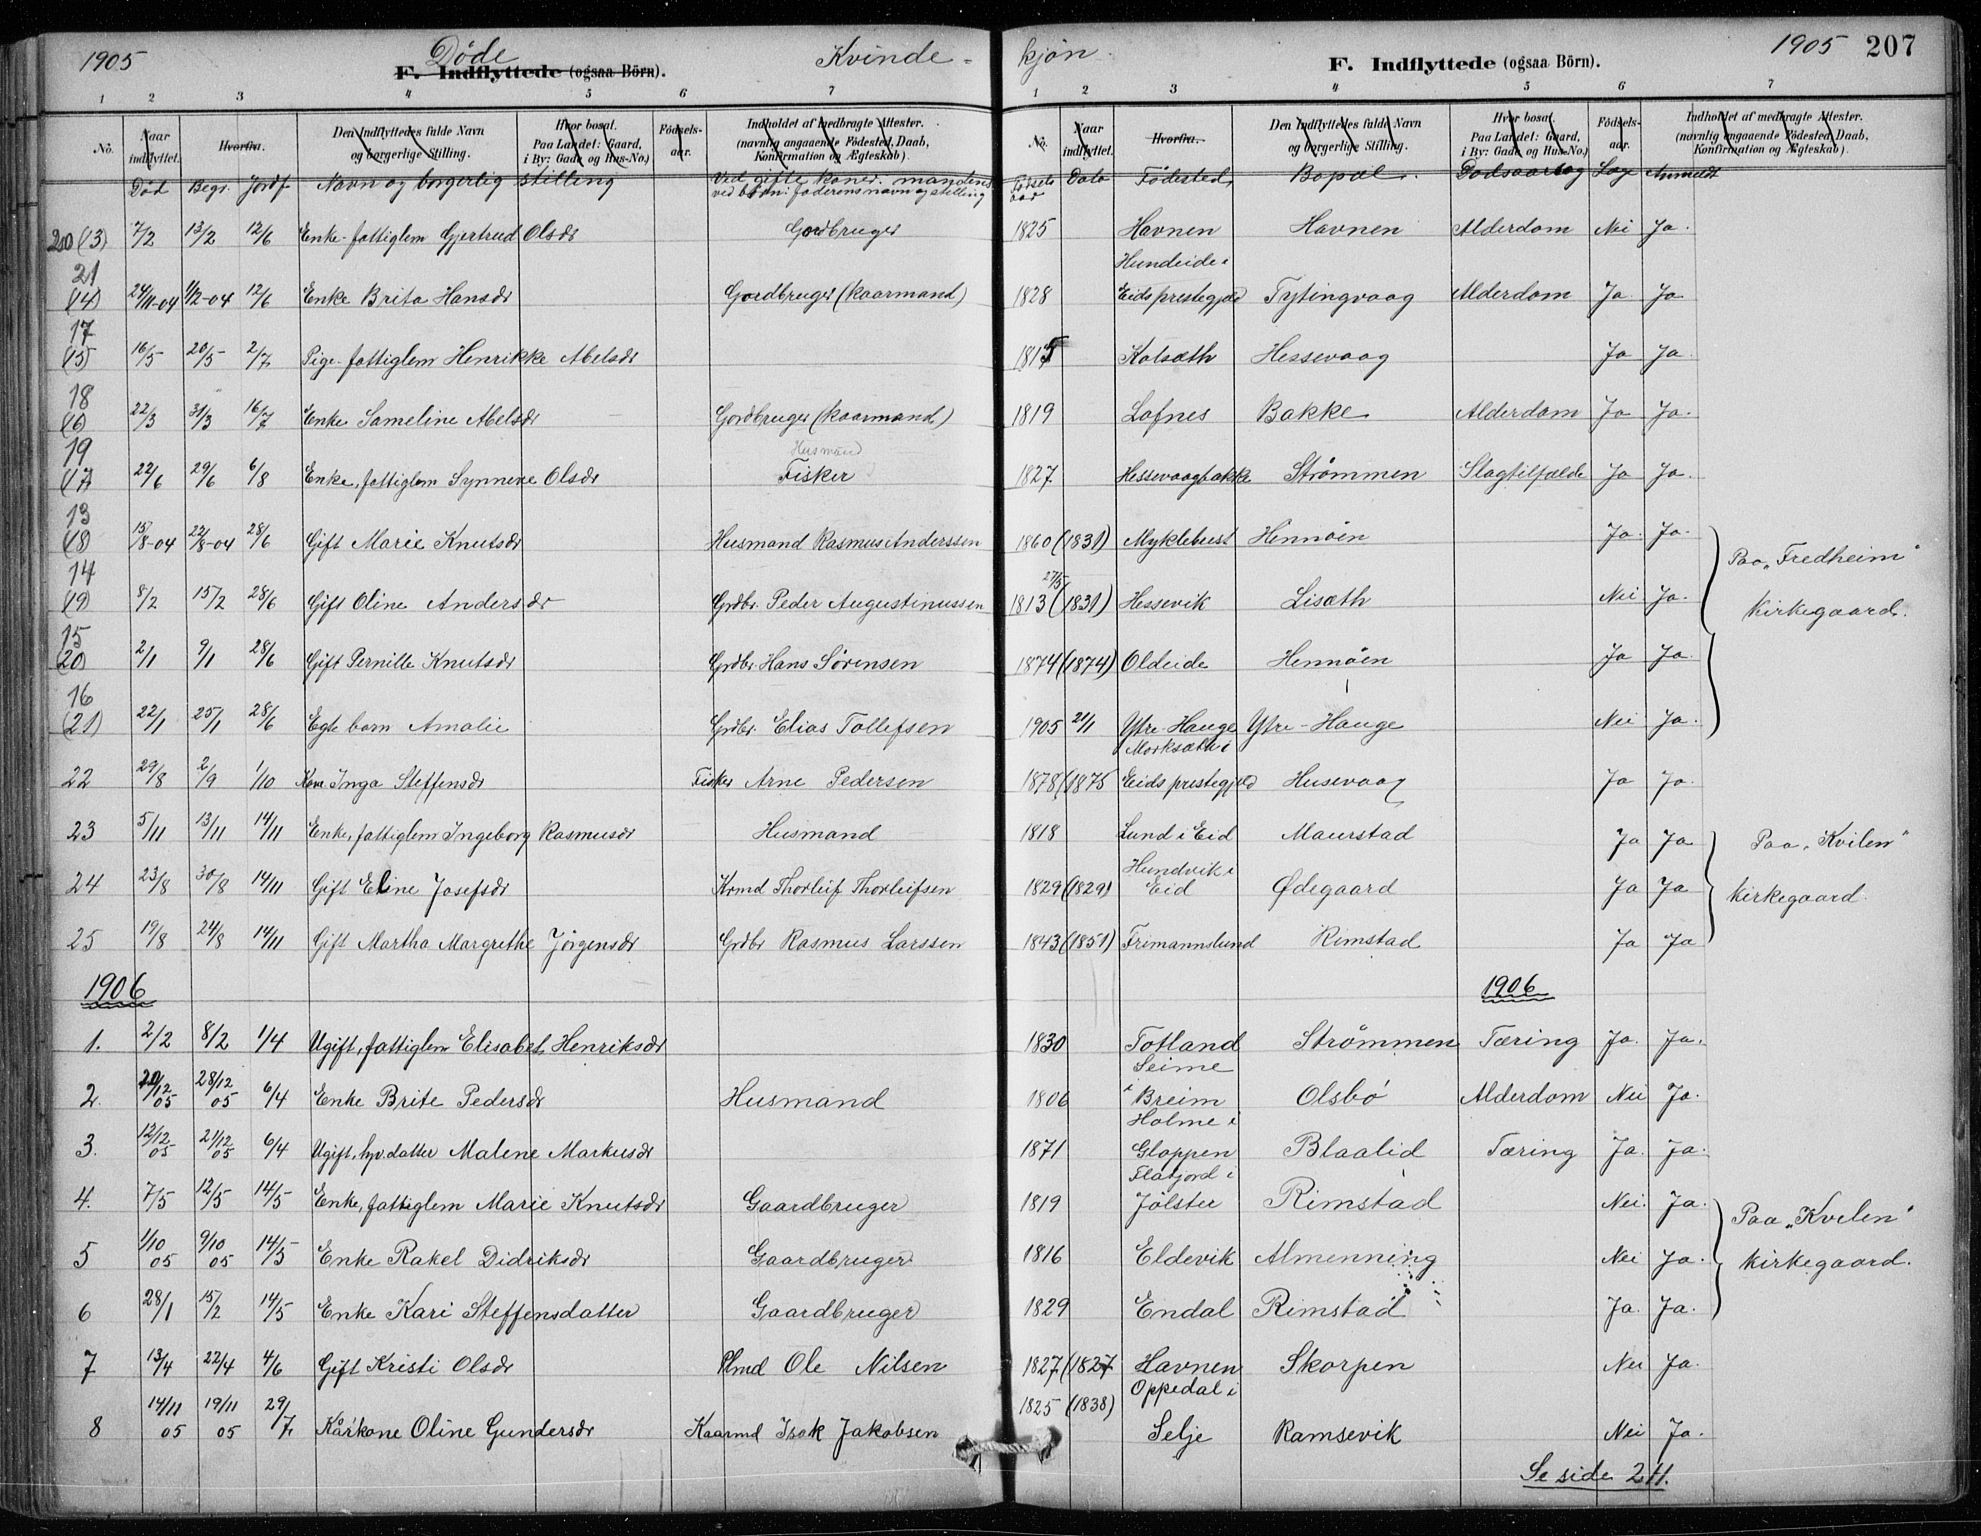 1905 Döde Kvinde- kjön. 1905 207
F. Indflyttede (ogsaa Börn). F. Indflyttede (ogsaa Börn).
1 2 3 4 5 6 7 1 2 3 4 5 6 7
No. Naar indflyttet. Hvorfra. Den Indflyttedes fulde Navn og borgerlige Stilling. Hvor bosat. Paa Landet: Gaard, i By: Gade og Hus-No.) Födsels-aar. Indholdet af medbragte Attester. (navnlig angaaende Födested, Daab, Konfirmation og Ægteskab).
No. Naar indflyttet. Hvorfra. Den Indflyttedes fulde Navn og borgerlige Stilling. Hvor bosat. Paa Landet: Gaard, i By: Gade og Hus-No.) Födsels-aar. Indholdet af medbragte Attester. (navnlig angaaende Födested, Daab, Konfirmation og Ægteskab).
Död Begr. Jordf. Navn og borgerlig stilling Ved gifte koner: mandens ved børn: faderens navn og stilling Fødsels aar Dato Fødested Bopæl Dødsaarsag Læge Anmeldt
20 (13) 7/2 13/2 12/6 Enke fattiglem Gjertrud Olsdr Gordbruger 1825 Havnen Havnen Alderdom Nei Ja.
21 (14) 24/11-04 1/12-04 12/6 Enke Brita Hansdr Gordbruger (kaarmand) 1828 Hundeide i Eids prestegjeld Tytingvaag Alderdom Ja Ja
17 (15) 16/5 20/5 2/7 Pige fattiglem Henrikke Abelsdr Kolsæth Hessevaag Ja Ja.
18 (16) 22/3 31/3 16/7 Enke Sameline Abelsdr Gordbruger (kaarmand) 1819 Lofnes Bakke Alderdom Ja Ja.
19 (17) 22/6 29/6 6/8 Enke, fattiglem Synneve Olsdr Husmand Fisker 1827 Hessevaagbakke Strömmen Slagtilfælde Ja Ja.
13 (18) 15/8-04 22/8-04 28/6 Gift Marie Knutsdr Husmand Rasmus Anderssen 1860 (1831) Myklebust Hennöen Ja. Ja. Paa "Fredheim"
14 (19) 8/2 15/2 28/6 Gift Oline Andersdr Grdbr. Peder Augustinussen 27/5 1813 (1831) Hessevik Lisæth Nei Ja. Kirkegaard.
15 (20) 2/1 9/1 28/6 Gift Pernille Knutsdr Grdbr. Hans Sörensen 1874 (1874) Oldeide Hennöen Ja Ja.
16 (21) 22/1 25/1 28/6 Egte barn Amalie Grdbr. Elias Tollefsen 1905 21/1 Ytre Hauge Ytre-Hauge Nei Ja.
22 29/8 2/9 1/10 Kone Inga Steffensdr Fisker Arne Pedersen 1878 (1875 Morksæth i Eids prestegjeld Husevaag Ja Ja.
23 5/11 13/11 14/11 Enke, fattiglem Ingeborg Rasmusdr Husmand 1818 Lund i Eid Maurstad Ja Ja Paa "Kvilen"
24 23/8 30/8 14/11 Gift Eline Josefsdr Krmd Thorleif Thorleifsen 1829 (1829) Hundvik i Eid Ødegaard Ja Ja Kirkegaard
25 19/8 24/8 14/11 Gift Martha Margrethe Jörgensdr Grdbr Rasmus Larssen 1843 (1851) Frimannslund Rimstad Ja Ja
1906 1906
1. 2/2 8/2 1/4 Ugift, fattiglem Elisabet Henriksdr 1830 Totland Strömmen Tæring Ja. Ja.
2. 20/12 05 28/12 05 6/4 Enke Brite Pedersdr Husmand 1806 Seime i Breim Olsbö Alderdom Nei Ja.
3. 12/12 05 21/12 05 6/4 Ugift, hv. datter Malene Markusdr 1871 Holme i Gloppen Blaalid Tæring Ja. Ja.
4. 7/5 12/5 14/5 Enke, fattiglem Marie Knutsdr Gaardbruger 1819 Flatjord i Jölster Rimstad Nei. Ja. Paa "Kvilen"
5 1/10 05 9/10 05 14/5 Enke Rakel Didriksdr Gaardbruger 1816 Eldevik Almenning Nei Ja. Kirkegaard.
6 28/1 15/2 14/5 Enke Kari Steffensdatter Gaardbruger 1829 Endal Rimstad Ja. Ja.
7 13/4 22/4 4/6 Gift Kristi Olsdr Plmd Ole Nilsen 1827 (1827 Havnen Skorpen Nei Ja.
8 14/11 05 19/11 05 29/7 Kårkone Oline Gundersdr Kaarmd Isak Jakobsen 1825 (1838) Oppedal i Selje Ramsevik Nei Ja.
Se side 211.